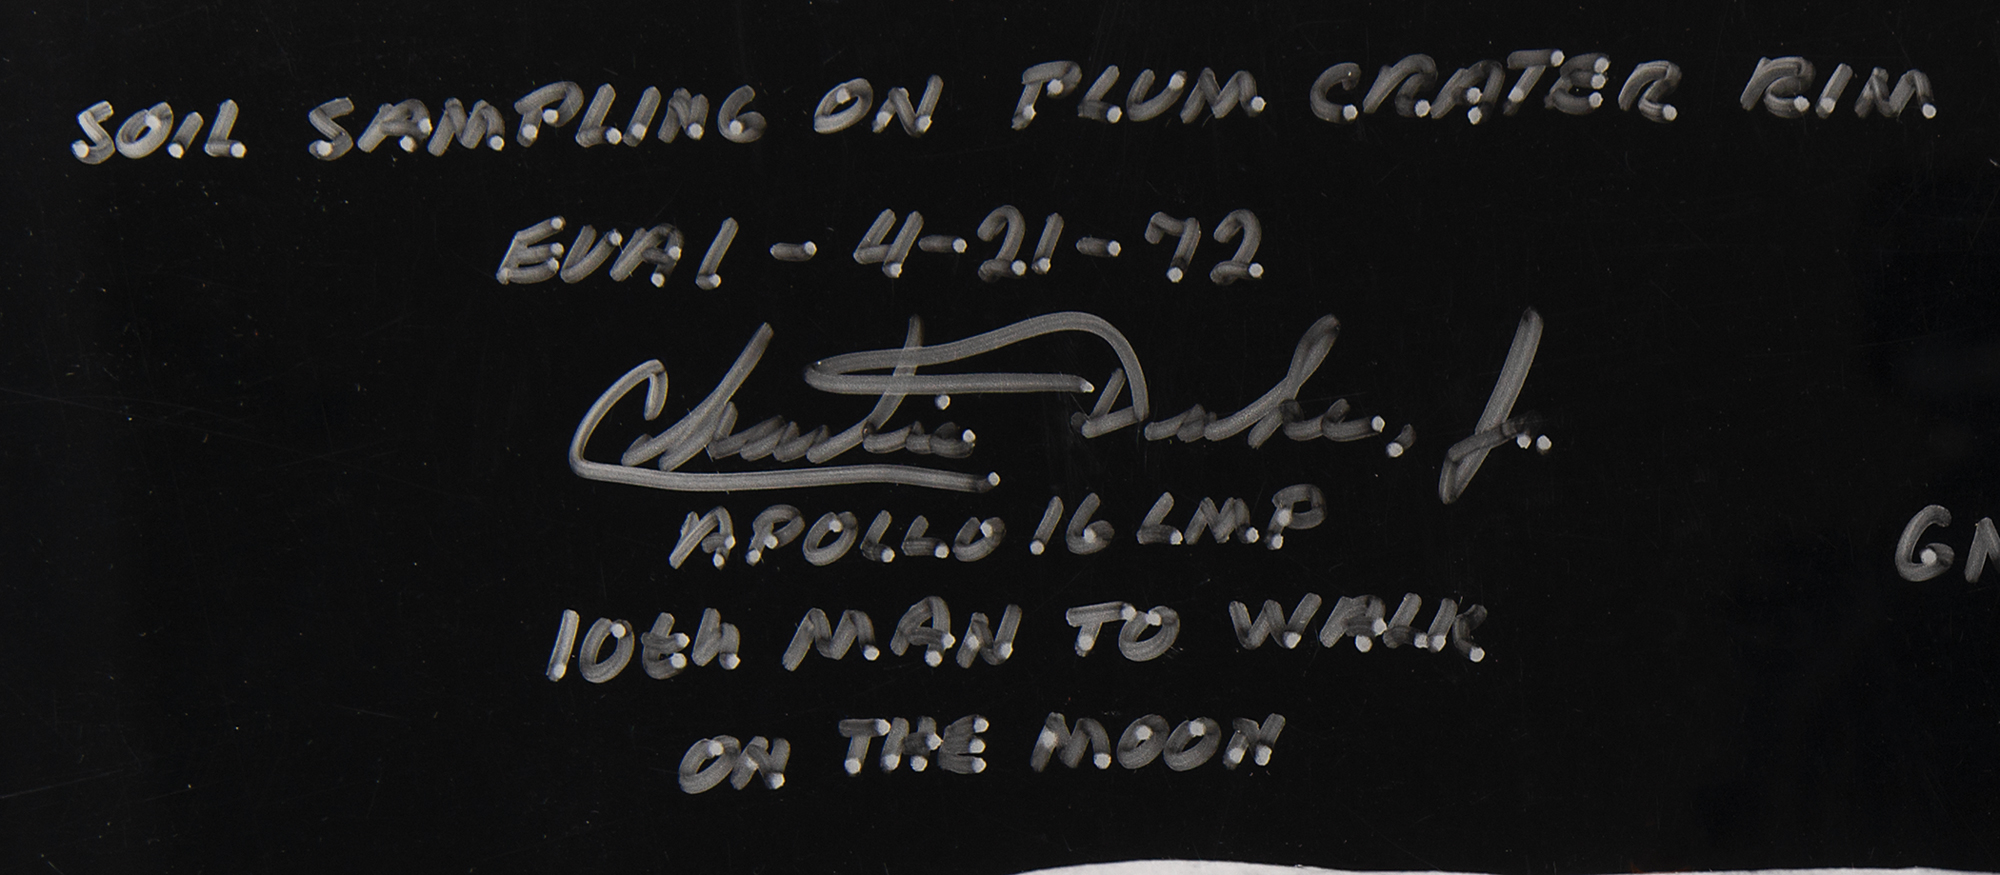 SOIL SAMPLING ON PLUM CRATER RIM
EVA 1 - 4-21-72
Charlie Duke, Jr.
APOLLO 16 LMP
10th MAN TO WALK
ON THE MOON